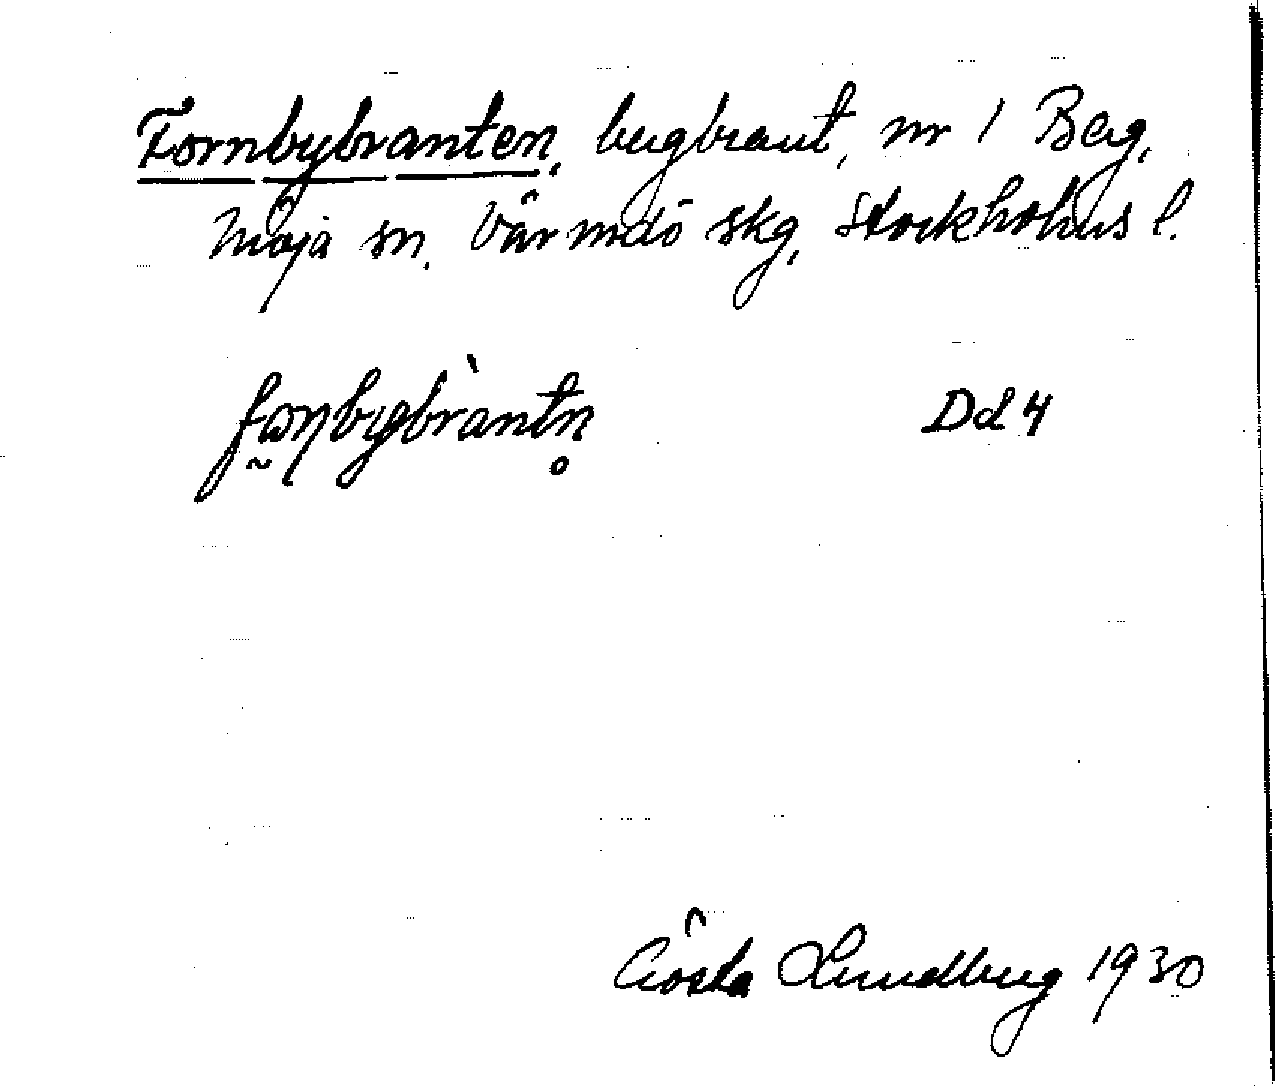 Fornbybranten, bergbrant, nr 1 Berg,
Möja sn. Värmdö skg, Stockholms l.
Dd 4
Gösta Lundberg 1930